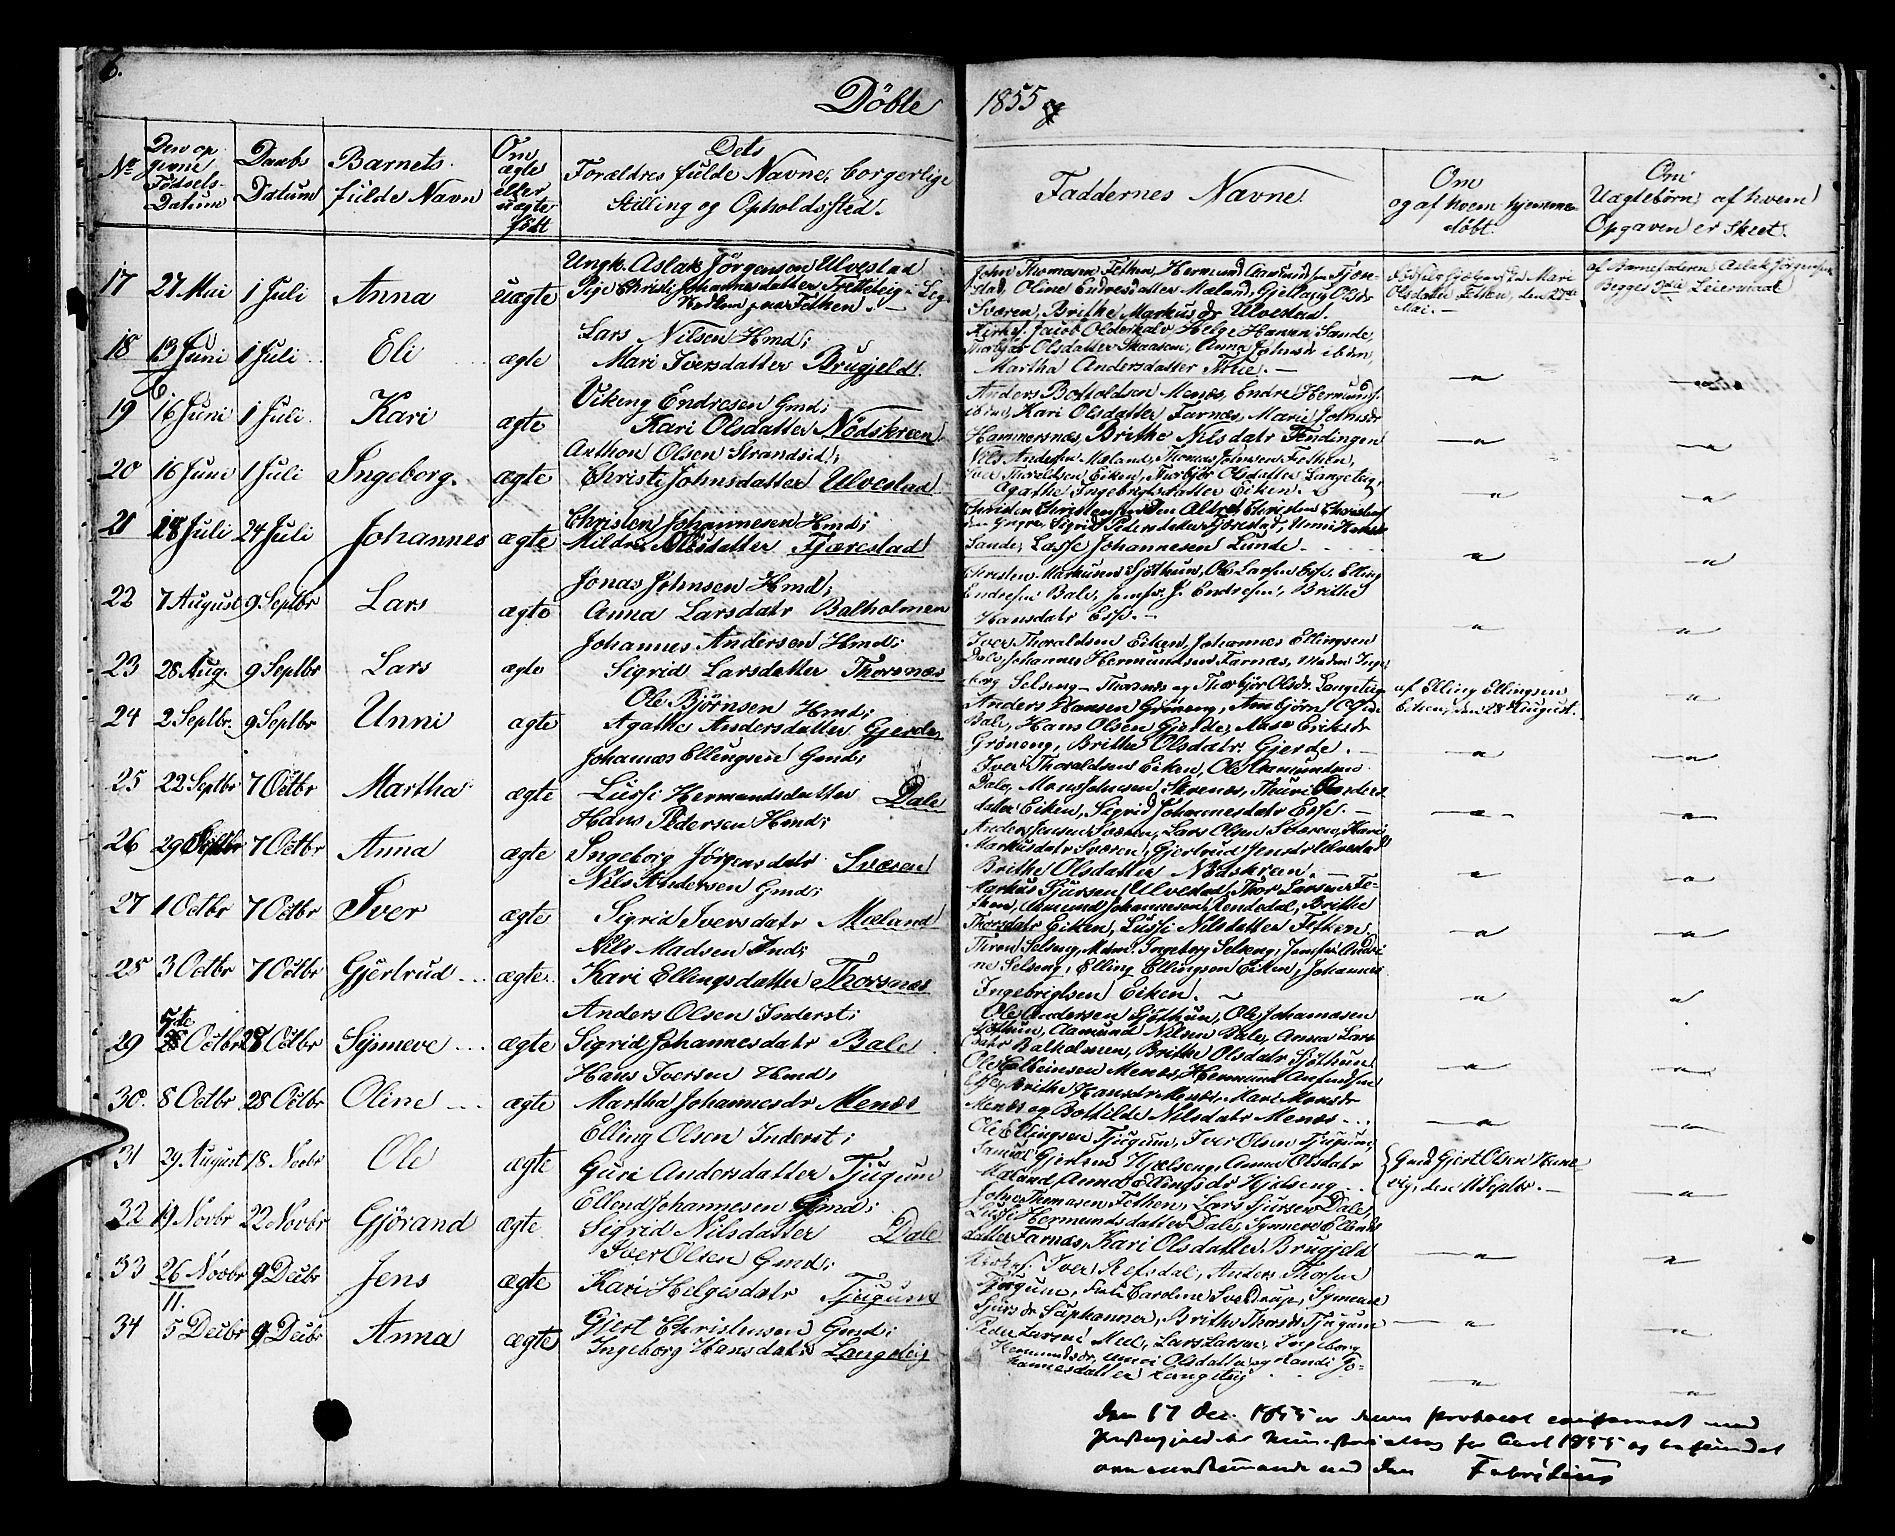 6.
Döbte 1855
No
Den opgivne Födsels-Datum
Daabs Datum
Barnets fulde Navn
Om ægte eller uægte født
Dets Forældres fulde Navne, borgerlige Stilling og Opholdssted.
Faddernes Navne
Om og af hvem hjemmedøbt.
Om Uægtebørn, af hvem Opgaven er skeet.
17 27 Mai 1 Juli Anna uægte
Ungk. Aslak Jörgensen Ulvestad
Pige Christi Johannesdatter
John Thomasen Fethen, Hermund
stad, Oline Endresdatter Mæland,
Sværen, Brithe Markusdr Ulvestad.
Olsdatter Fethen, den 27de
Mai.
af Barnefaderen, Aslak Jörgensen
Begges Leiermaal
18 13 Juni 1 Juli Eli ægte
Lars Nilsen Hmd;
Mari Iversdatter Brugjeld.
Kirks. Jacob Olderhalv, Helge Hansen Sande,
Thorbjør Olsdatter
Martha Andersdatter
19 16 Juni 1 Juli Kari ægte
Viking Endresen Gmd;
Kari Olsdatter Nödskreen.
Anders Botholdsen Menæs, Endre Hermunds.
ibidm, Kari Olsdatter Farnæs, Mari Johnsdr
Hammersnæs, Brithe Nilsdatr Tendingen
20 16 Juni 1 Juli Ingeborg. ægte
Anthon Olsen Strandsid;
Christi Johnsdatter Ulvestad
Nils Andersen Mæland, Thomas Johnsen Fethen,
Thoraldsen Eiken, Thorbjør Olsdatter Langeteig,
Agathe Ingebrigtsdatter Eiken.
21 18 Juli 24 Juli Johannes ægte
Christen Johannesen Hmd;
Mildre Olsdatter Fjærestad
Sande, Lasse Johannesen Lunde.
22 7 August 9 Septbr Lars ægte
Jonas Johnsen Hmd;
Anna Larsdatr Balholmen
Christen Markusen Sjöthun, Ole Larsen Esse, Elling
Endresen Bale, Jomfr. J. Endresen, Brithe
Hansdatr Esse.
23 28 Aug. 9 Septbr Lars ægte
Johannes Andersen Hmd;
Sigrid Larsdatter Thorsnæs
Iver Thoraldsen Eiken, Johannes Ellingsen
Dale, Johannes Hermundsen Farnæs, Madm Inge
borg Selseng Thorsnæs og Thorbjör Olsdr. Langeteig
af Elling Ellingsen
Eiken, den 28 August.
24 2 Septbr. 9 Septbr Unni ægte
Ole Björnsen Hmd;
Agathe Andersdatter Gjerde,
Anders Hansen Gröneng,
Bale, Hans Olsen Gjerde, Eriksdr
Gröneng, Brithe Olsdatr. Gjerde.
25 22 Septbr 7 Octbr Martha ægte
Johannes Ellingsen Gmd;
Lussi Hermundsdatter Dale
Iver Thoraldsen Eiken, Ole Aamundsen
Dale, Mons Johnsen Thuri
datter Eiken, Sigrid Johannesdatr Esse.
26 29 Septbr 7 Octbr Anna ægte
Hans Pedersen Hmd;
Ingeborg Jörgensdatr. Sværen
Anders Jensen Sværen, Lars Olsen Sværen, Kari
Markusdatr Sværen, Gjertrud Jensdr Ulvestad
Brithe Olsdatter Nödskreen.
27 1 Octbr 7 Octbr Iver ægte
Nils Andersen Gmd;
Sigrid Iversdatr Mæland
Markus Sjursen Ulvestad, Thor Larsen Fe-
then, Aamund Johannesen Brithe
Thorsdatr Eiken, Lussi Nilsdatter Fethen.
28 3 Octbr 7 Octbr Gjertrud ægte.
Nils Madsen Ind;
Kari Ellingsdatter Thorsnæs
Selseng, Mdm. Ingeborg Selseng, Jomfr. Andri
ne Selseng, Elling Ellingson Eiken, Johannes
Ingebrigtsen Eiken.
5de
29 Octbr 28 Octbr Synneve ægte
Anders Olsen Inderst;
Sigrid Johannesdatr Bale
Ole Andersen Sjöthun, Ole Johannesen
Sjöthun, Aamund Nilsen Bale, Anna Lars
datr Balholmen, Brithe Olsdatr Sjöthun
30. 8 Octbr 28 Octbr Oline ægte
Hans Iversen Hmd;
Martha Johannesdr Menæs
Menæs, Hermund
Esse, Brithe Hansdr Menæs, Mari Monsdr
Menæs og Bothilde Nilsdatr Menæs
31 29 August 18 Novbr Ole ægte
Elling Olsen Inderst;
Guri Andersdatter Tjugum
Ole Ellingsen Tjugum, Iver Olsen Tjugum,
Samuel Gjertsen Hjelseng, Anna Olsdatr
Mæland, Anna Ellingsdr Hjelseng
Gmd Gjert Olsen
vig, den 11 Septbr.
32 19 Novbr 22 Novbr Gjörand ægte.
Ellend Johannesen Gmd;
Sigrid Nilsdatter Dale
John Thomasen Fethen, Lars Sjursen Dale,
Lussi Hermundsdatter Dale, Synneve Ellends
datter Farnæs, Kari Olsdatter Brugjeld
33 26 Novbr 9 Decbr Jens ægte
Iver Olsen Gmd;
Kari Helgesdatr Tjugum
Kirkes. Iver Refsdal, Anders Thorsen
Tjugum, Cardine Sverdrup, Synneve
Sjursdr Brithe Thorsdr Tjugum
11.
34 5 Decbr 9 Decbr Anna ægte
Gjert Christensen Gmd;
Ingeborg Hansdatr Langeteig
Peder Larsen Mel, Lars Larsen, Ingeborg
Hermundsdr, Unni Olsdatter og Randi Jo-
hannesdatter Langeteig
Den 17 Dec. 1855 er denne protocol conferneret med
Præstegjeldets Ministerialbog for Aaret 1855 og befundet
overensstemmende med den Fabritius